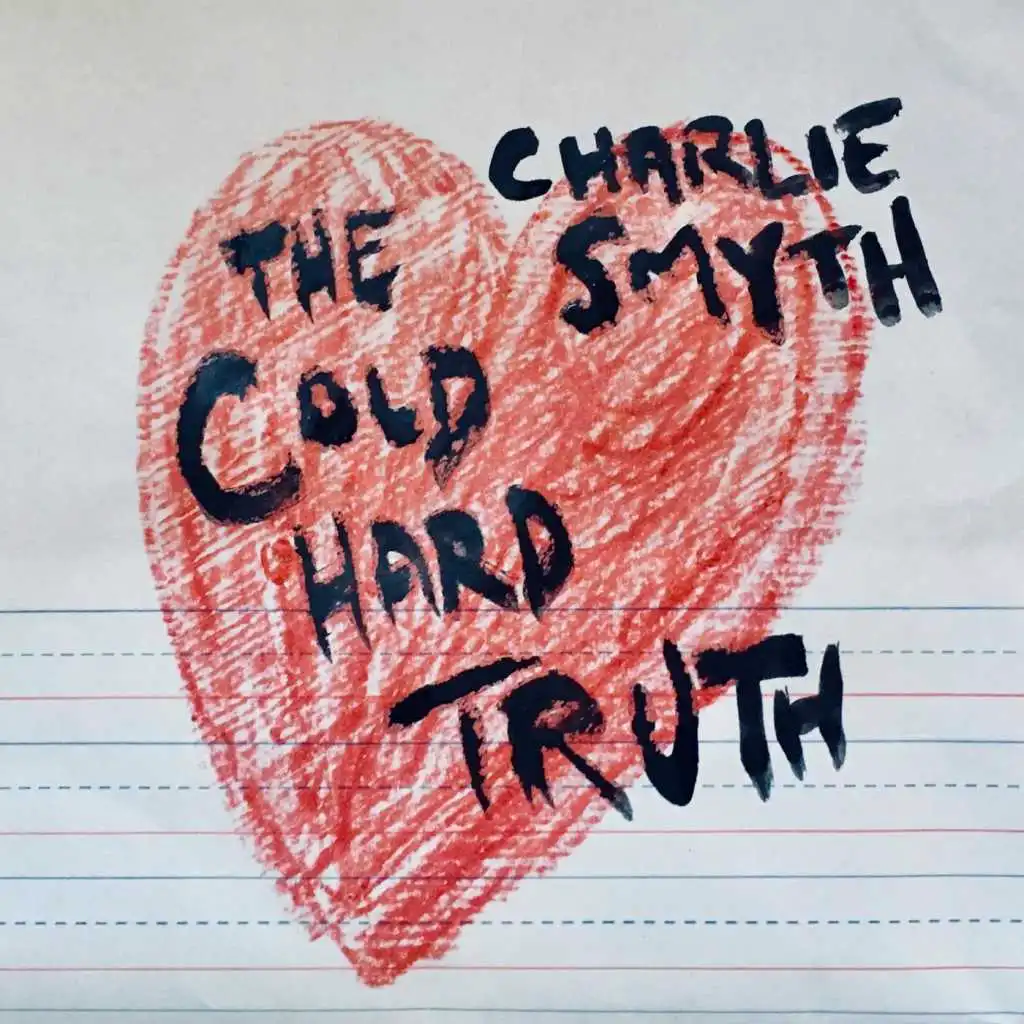 CHARLIE
SMYTH
THE
COLD
HARD
TRUTH